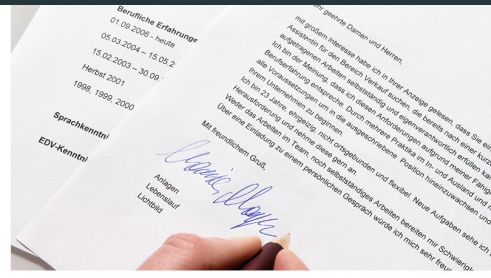 Berufliche Erfahrunge
01.09.2006 - heute
05.03.2004 – 15.05.2
15.02.2003 – 30.09
Herbst 2001
1998, 1999, 2000
Sprachkenntni
EDV-Kenntni
geehrte Damen und Herren,
mit großem Interesse habe ich in Ihrer Anzeige gelesen, dass Sie ein
Assistentin für den Bereich Verkauf suchen, die bereits nach einer kurz
aufgetragenen Arbeiten selbstständig und eigenverantwortlich erfüllen kan
Ich bin der Meinung, dass ich diesen Anforderungen aufgrund meiner Fähig
Berufserfahrung entspreche. Durch mehrere Praktika im In- und Ausland und
alle Voraussetzungen um in die ausgeschriebene Position hineinzuwachsen und
Ihrem Unternehmen zu beginnen.
Ich bin 23 Jahre, ehrgeizig, nicht ortsgebunden und flexibel. Neue Aufgaben sehe ich
Herausforderung und nehme diese gern an.
Weder das Arbeiten im Team, noch selbstständiges Arbeiten bereiten mir Schwierigk
Über eine Einladung zu einem persönlichen Gespräch würde ich mich sehr freu
Mit freundlichem Gruß,
Anlagen
Lebenslauf
Lichtbild